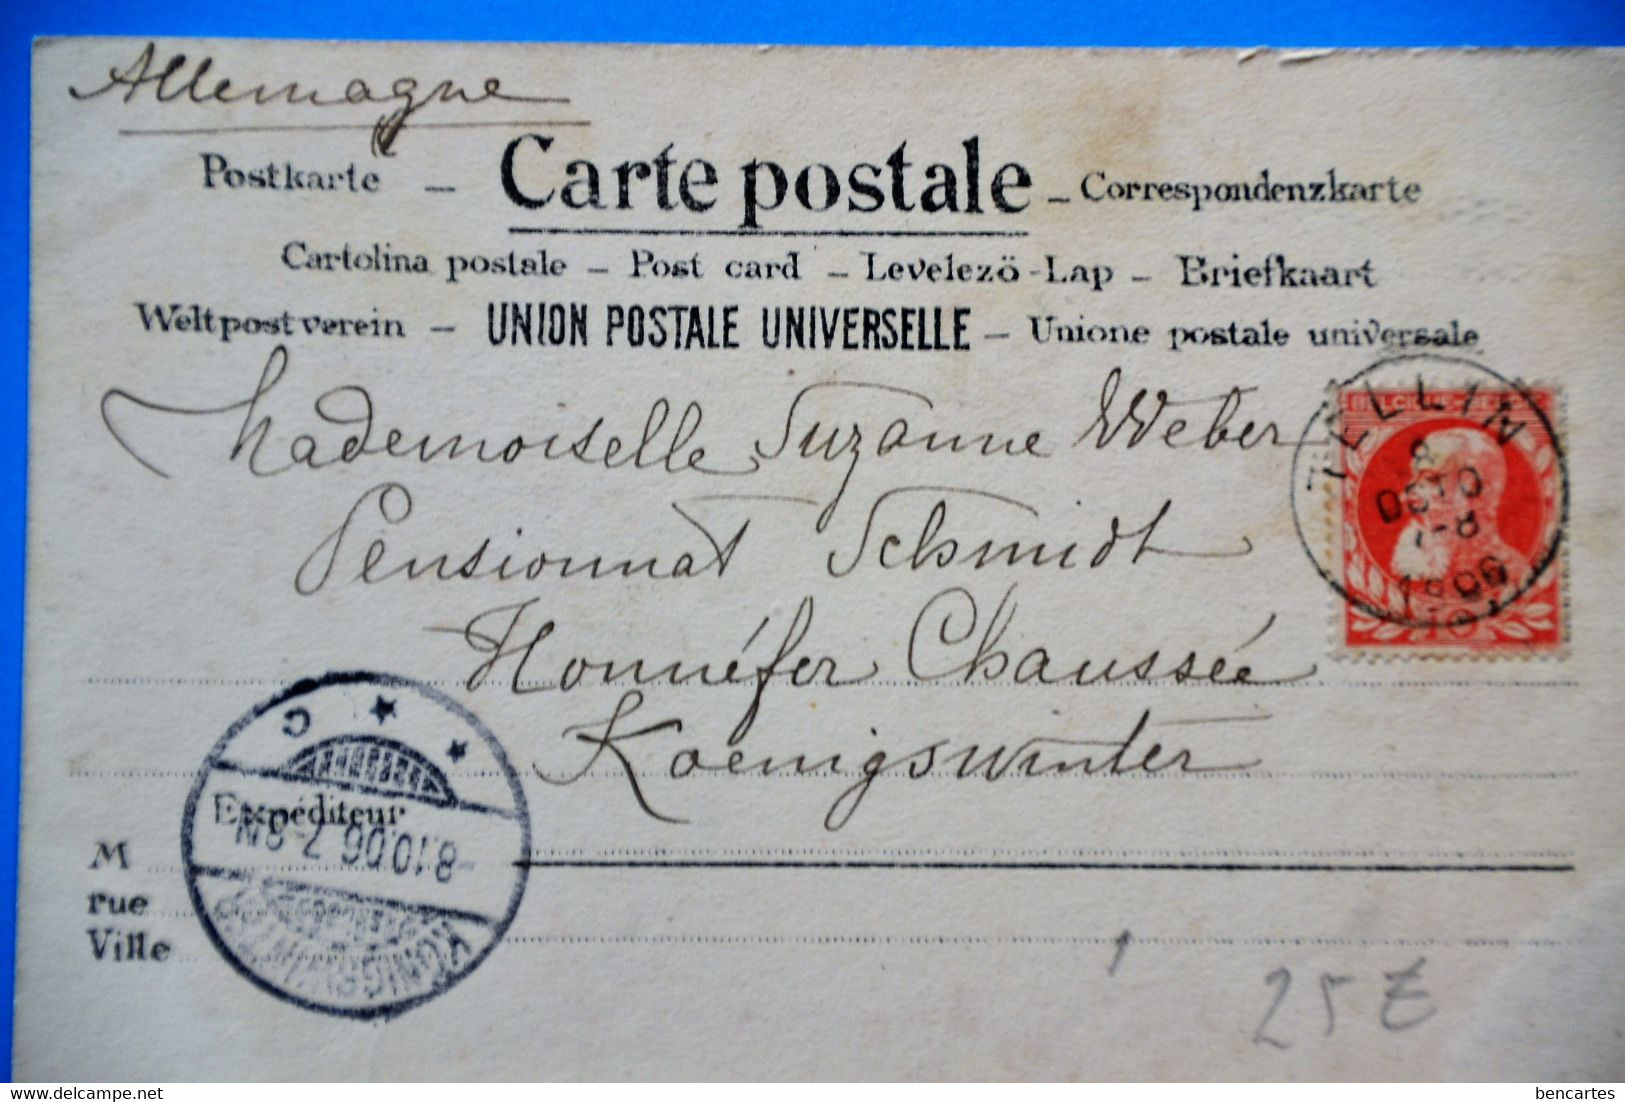 Allemagne
Postkarte – Carte postale – Correspondenzkarte
Cartolina postale – Post card – Levelezö-Lap – Briefkaart
Weltpostverein – UNION POSTALE UNIVERSELLE – Unione postale universale
Mademoiselle Suzanne Weber
Pensionnat Schmidt
Honnéfer Chaussée
Koenigswinter
TELLIN
8
OCTO
7-8
1906
10
C
Expéditeur
8.10.06. 7-8N
KÖNIGSWINTER
M
rue
Ville
25
delcampe.net
bencartes